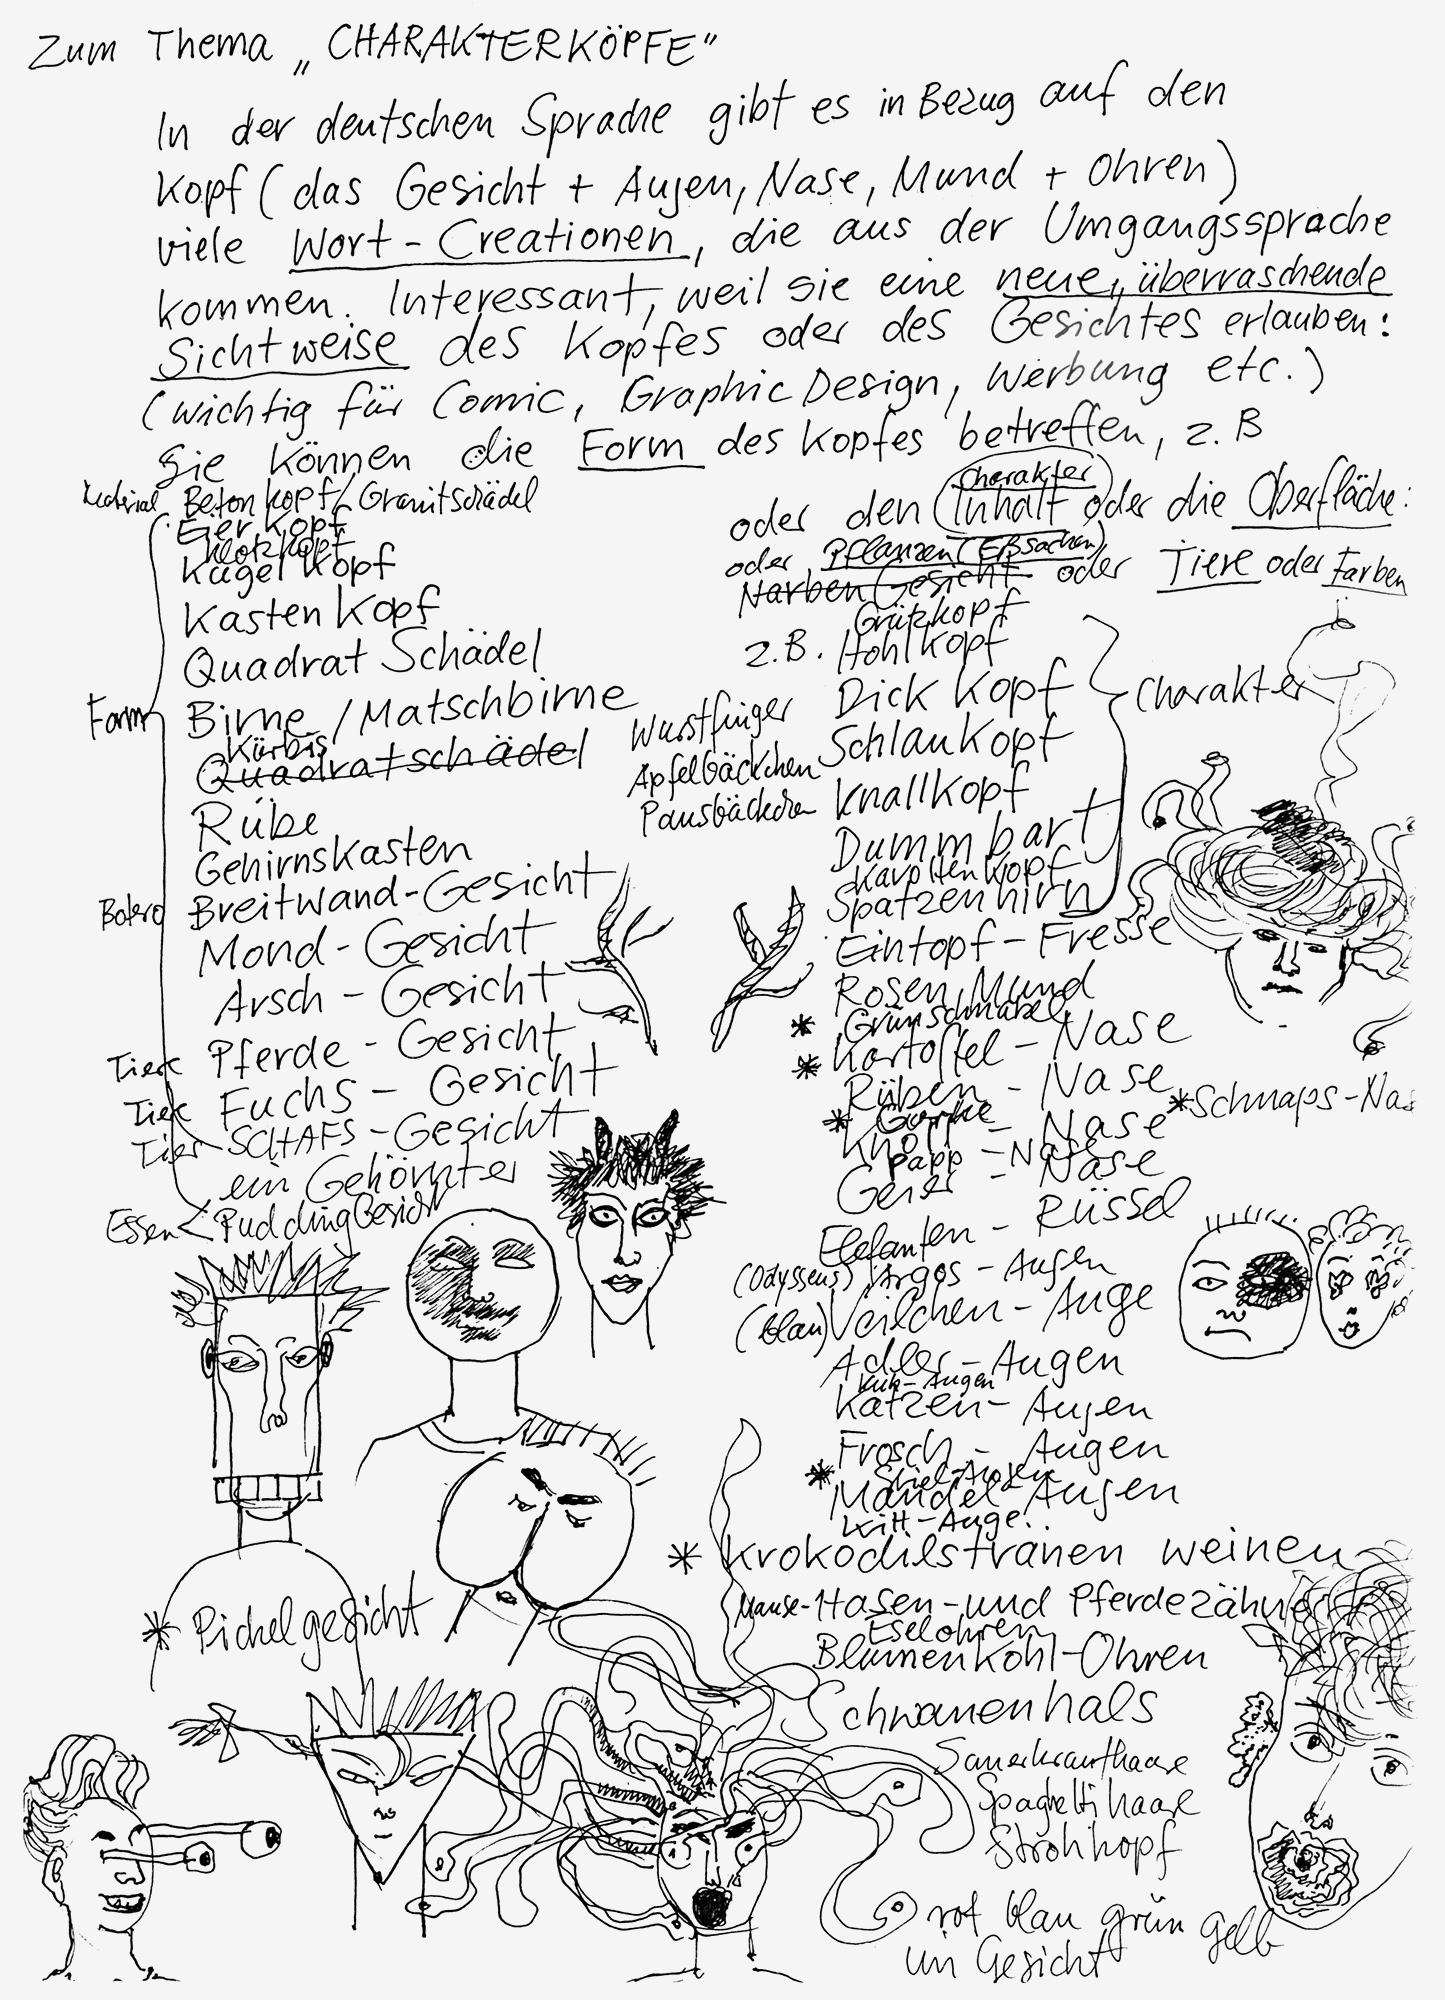 Zum Thema „CHARAKTERKÖPFE“
In der deutschen Sprache gibt es in Bezug auf den
Kopf (das Gesicht + Augen, Nase, Mund + Ohren)
viele Wort-Creationen, die aus der Umgangssprache
kommen. Interessant, weil sie eine neue, überraschende
Sichtweise des Kopfes oder des Gesichtes erlauben:
(wichtig für Comic, Graphic Design, Werbung etc.)
Sie können die Form des Kopfes betreffen, z.B
Material Betonkopf/Granitschädel
Eierkopf
Klotzkopf
Kugelkopf
Kastenkopf
Quadrat Schädel
Form
Birne/Matschbirne
Kürbis
Quadratschädel
Rübe
Gehirnskasten
Botero Breitwand-Gesicht
Mond-Gesicht
Arsch-Gesicht
Tiere Pferde-Gesicht
Tiere Fuchs-Gesicht
Tier SCHAFS-Gesicht
ein Gehörnter
Essen < PuddingGesicht
* Pickelgesicht
oder den (Inhalt oder die Oberfläche:
Charakter)
oder Pflanzen (Eßsachen) oder Tiere oder Farben
Narben Gesicht
Grützkopf
z.B. Hohlkopf
Dick Kopf
Charakter
Wurstfinger
Schlaukopf
Apfelbäckchen
Knallkopf
Pausbäckchen
Dummbart
Karpfenkopf
Spatzenhirn
Eintopf-Fresse
Rosen Mund
* Grünschnabel
* Kartoffel-Nase
Rüben-Nase
* Schnaps-Nas
* Gurke
Knopf-Nase
Papp-Nase
Geier-Nase
Elefanten-Rüssel
(Odysseus) Argos-Augen
(blau) Veilchen-Auge
Adler-Augen
Kuh-Augen
Katzen-Augen
Frosch-Augen
* Stiel-Augen
Mandel-Augen
* Krokodilstränen weinen
Mause-Hasen-und Pferdezähne
Eselohren
Blumenkohl-Ohren
Schwanenhals
Sauerkrauthaare
Spagettihaare
Strohkopf
rot blau grün gelb
im Gesicht